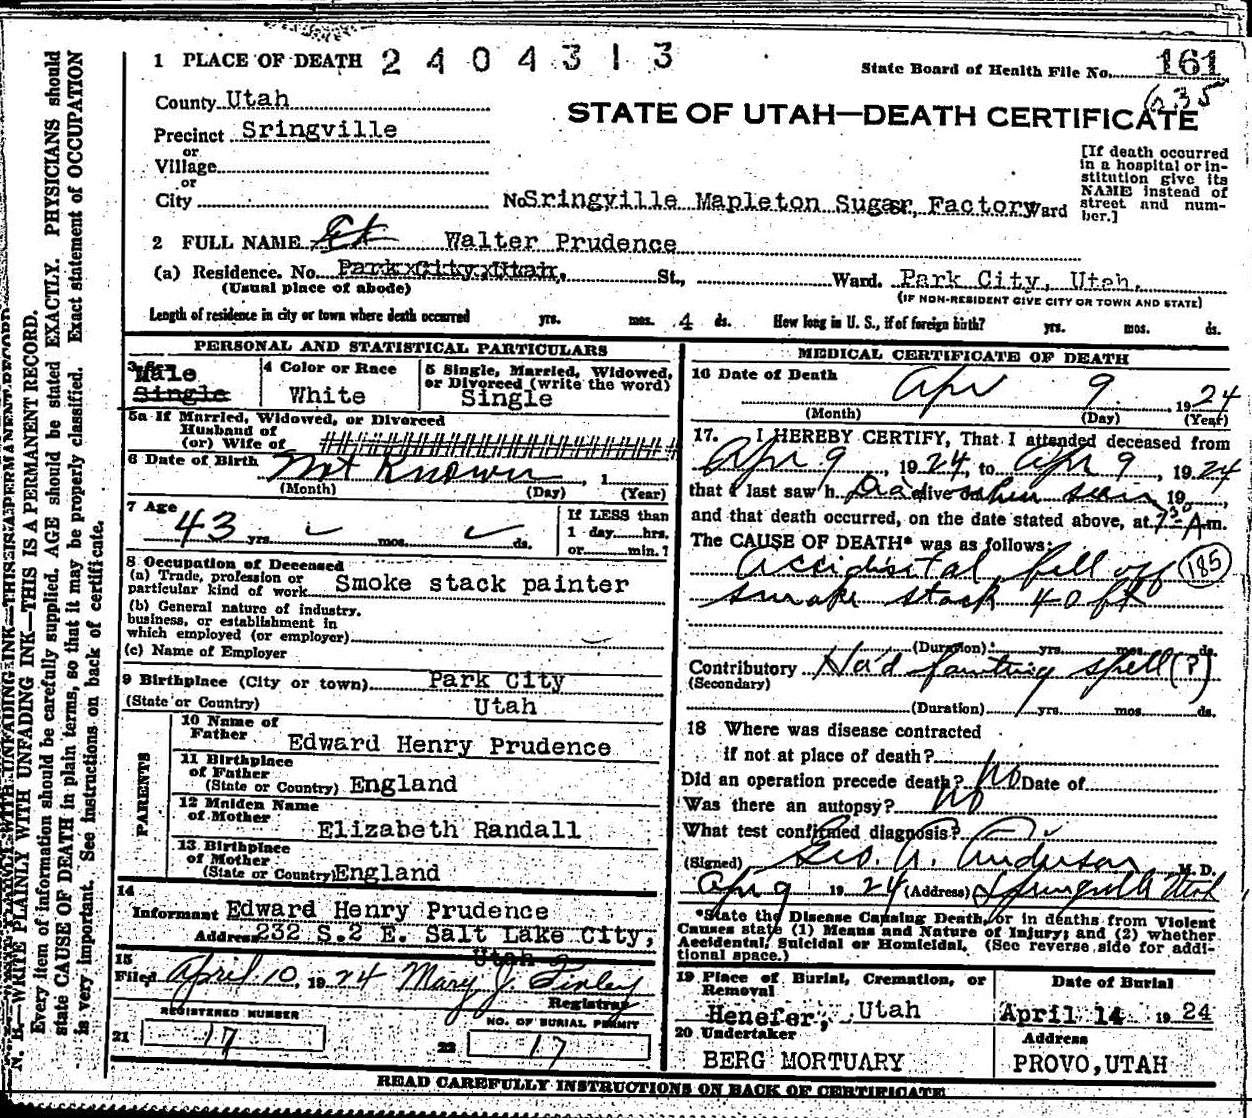 1 PLACE OF DEATH 2404313
State Board of Health File No. 161
635
County Utah
STATE OF UTAH—DEATH CERTIFICATE
Precinct Sringville
or
Village
or
City
No Sringville Mapleton Sugar Factory Ward
[If death occurred
in a hospital or in-
stitution give its
NAME instead of
street and num-
ber.]
2 FULL NAME Walter Prudence
(a) Residence. No. Park City Utah. St., Ward. Park City, Utah.
(Usual place of abode)
(IF NON-RESIDENT GIVE CITY OR TOWN AND STATE)
Length of residence in city or town where death occurred yrs. mos. 4 ds. How long in U. S., if of foreign birth? yrs. mos. ds.
PERSONAL AND STATISTICAL PARTICULARS
3 Sex
Male
Single
4 Color or Race
White
5 Single, Married, Widowed,
or Divorced (write the word)
Single
5a If Married, Widowed, or Divorced
Husband of
(or) Wife of ################
6 Date of Birth Not Known , 1
(Month) (Day) (Year)
7 Age 43 yrs. mos. ds.
If LESS than
1 day hrs.
or min.?
8 Occupation of Deceased
(a) Trade, profession or
particular kind of work Smoke stack painter
(b) General nature of industry.
business, or establishment in
which employed (or employer)
(c) Name of Employer
9 Birthplace (City or town) Park City
(State or Country) Utah
PARENTS
10 Name of
Father Edward Henry Prudence
11 Birthplace
of Father
(State or Country) England
12 Maiden Name
of Mother Elizabeth Randall
13 Birthplace
of Mother
(State or Country) England
14
Informant Edward Henry Prudence
Address 232 S.2 E. Salt Lake City,
Utah
15
Filed April 10, 1924 Mary J. Finley
Registrar
REGISTERED NUMBER
21 17
NO. OF BURIAL PERMIT
22 17
MEDICAL CERTIFICATE OF DEATH
16 Date of Death
Apr 9 , 1924
(Month) (Day) (Year)
17. I HEREBY CERTIFY, That I attended deceased from
Apr 9 , 1924, to Apr 9 , 1924
that I last saw h Dead alive on when seen , 19 ,
and that death occurred, on the date stated above, at 7 30 A m.
The CAUSE OF DEATH* was as follows:
Accidental fell off 185
smoke stack 40 ft
(Duration) yrs. mos. ds.
Contributory Had fainting spell (?)
(Secondary)
(Duration) yrs. mos. ds.
18 Where was disease contracted
if not at place of death?
Did an operation precede death? No Date of
Was there an autopsy? No
What test confirmed diagnosis?
(Signed) Geo. A. Anderson M. D.
Apr 9 1924 (Address) Springville Utah
*State the Disease Causing Death, or in deaths from Violent
Causes state (1) Means and Nature of Injury; and (2) whether
Accidental, Suicidal or Homicidal, (See reverse side for addi-
tional space.)
19 Place of Burial, Cremation, or
Removal
Henefer, Utah
Date of Burial
April 14 1924
20 Undertaker
BERG MORTUARY
Address
PROVO, UTAH
READ CAREFULLY INSTRUCTIONS ON BACK OF CERTIFICATE
N. B.—WRITE PLAINLY WITH UNFADING INK—THIS IS A PERMANENT RECORD.
Every item of information should be carefully supplied. AGE should be stated EXACTLY. PHYSICIANS should
state CAUSE OF DEATH in plain terms, so that it may be properly classified. Exact statement of OCCUPATION
is very important. See instructions on back of certificate.